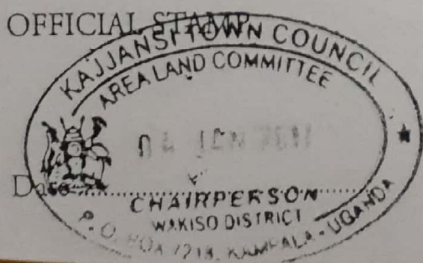 OFFICIAL STAMP
KAJJANSI TOWN COUNCIL
AREA LAND COMMITTEE
04 JAN
Date
CHAIRPERSON
WAKISO DISTRICT
P. O. BOX 7218, KAMPALA - UGANDA